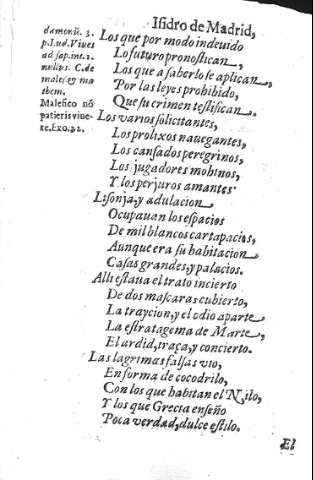 Isidro de Madrid,
damonii. 3.
p. Lud. Viues
ad sap. int. 2.
mulus. C. de
malef. & ma
them.
Malefico nõ
patieris viue-
re, Exo. 22.
Los que por modo indeuido
Lo futuro pronostican,
Los que a saberlo se aplican,
Por las leyes prohibido,
Que su crimen testifican.
Los varios solicitantes,
Los prolixos nauegantes,
Los cansados peregrinos,
Los jugadores mohinos,
Y los perjuros amantes
Lisonja, y adulacion
Ocupauan los espacios
De mil blancos cartapacios,
Aunque era su habitacion
Casas grandes, y palacios.
Alli estaua el trato incierto
De dos mascaras cubierto,
La trayçion, y el odio aparte
La estratagema de Marte,
El ardid, traça, y concierto.
Las lagrimas falsas vio,
En forma de cocodrilo,
Con los que habitan el Nilo,
Y los que Grecia enseño
Poca verdad, dulce estilo.
El